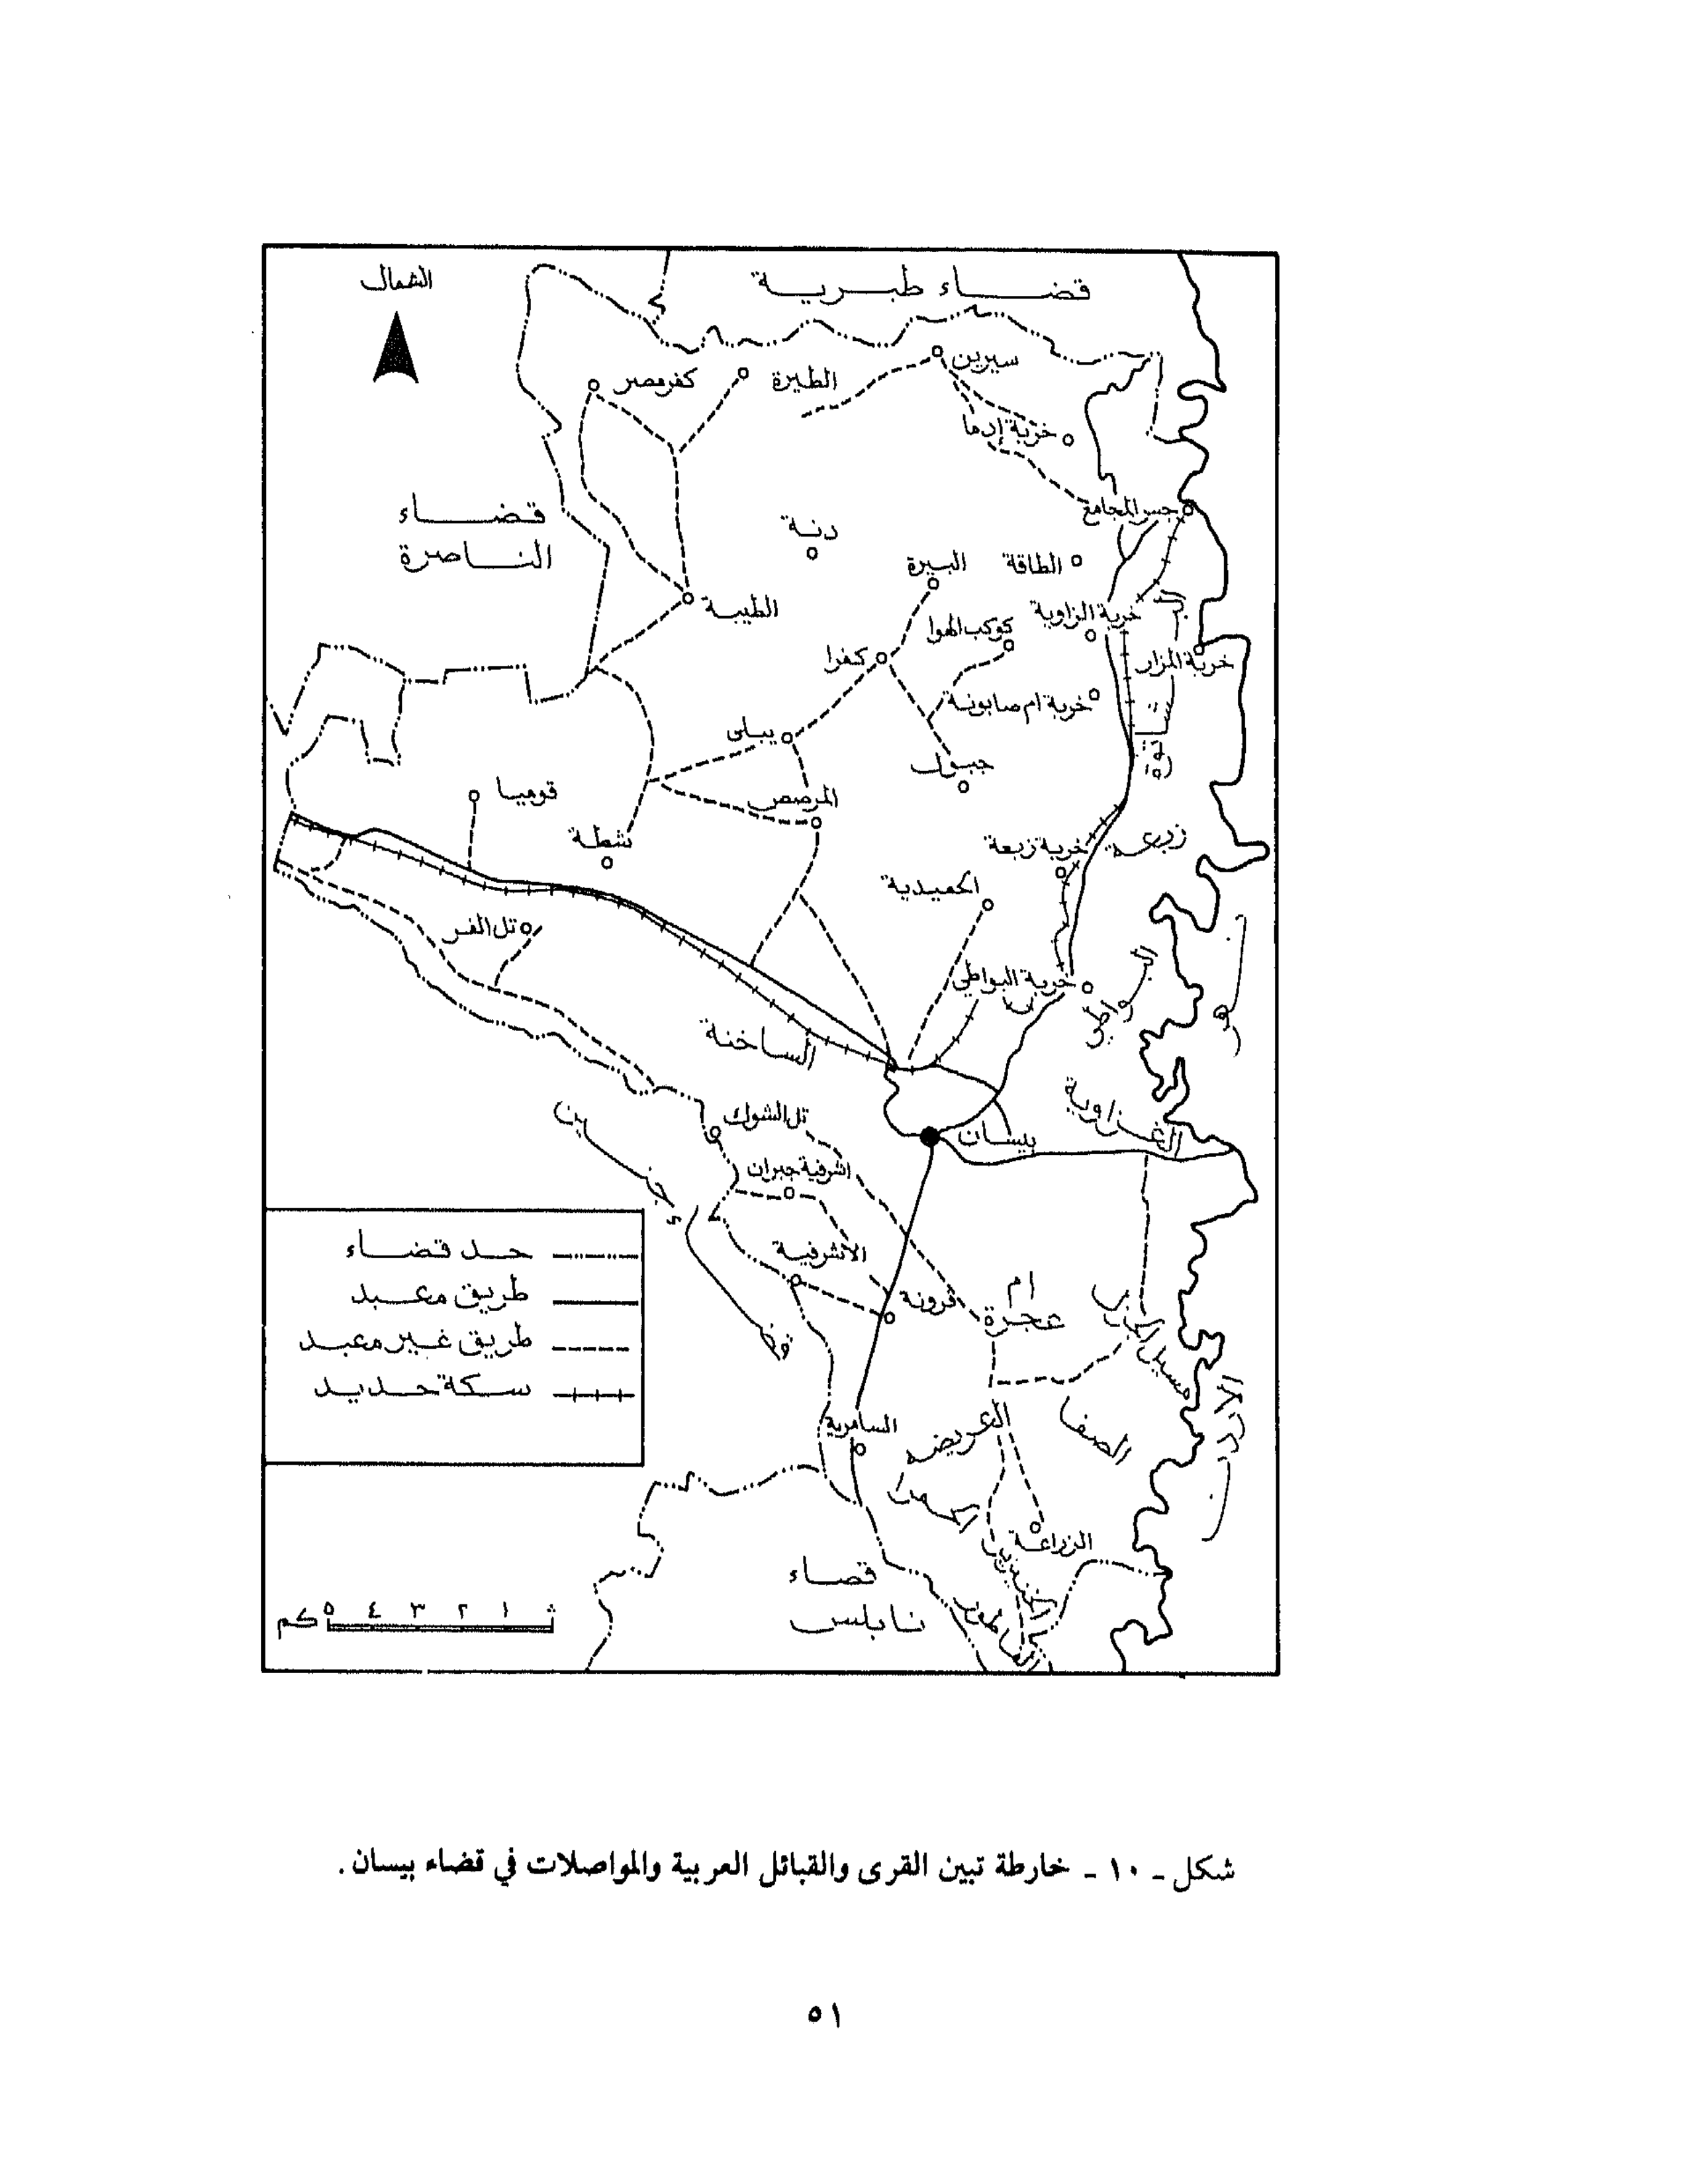 الشمال
قضاء طبرية
سيرين
كفرمصر
الطيرة
خربة إدما
قضاء
الناصرة
جسر المجامع
دنة
البيرة
الطاقة
الطيبة
خربة الزاوية
كوكب الهوا
كفرا
خربة المزار
خربة ام صابونة
يبلى
جبول
قوميا
المرصص
شطة
خربة زبعة
الحميدية
تل الفر
خربة البواطي
البواطي
نهر
الساخنة
الغزاوية
تل الشوك
بيسان
اشرفية جبران
قضاء جنين
الأشرفية
قرونة
ام
عجرة
مسيل الجزل
الأردن
الصفا
السامرية
العريضة
الزراعة
قضاء
نابلس
حد قضاء
طريق معبد
طريق غير معبد
سكة حديد
١ ٢ ٣ ٤ ٥ كم
شكل - ١٠ - خارطة تبين القرى والقبائل العربية والمواصلات في قضاء بيسان .
٥١